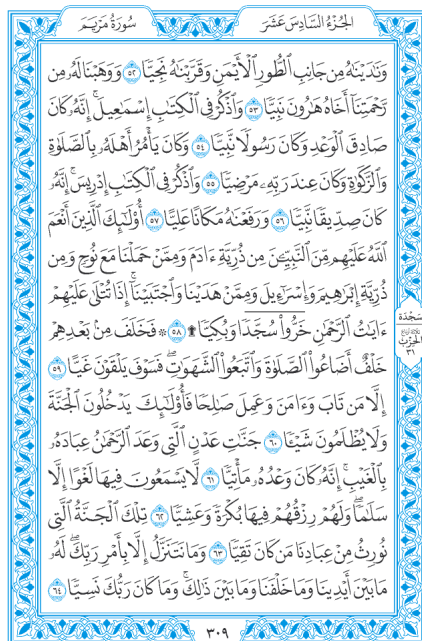 الجُزْءُ السَّادِسَ عَشَرَ
سُورَةُ مَرْيَمَ
وَنَٰدَيْنَٰهُ مِن جَانِبِ ٱلطُّورِ ٱلْأَيْمَنِ وَقَرَّبْنَٰهُ نَجِيًّا ٥٢ وَوَهَبْنَا لَهُۥ مِن
رَّحْمَتِنَآ أَخَاهُ هَٰرُونَ نَبِيًّا ٥٣ وَٱذْكُرْ فِي ٱلْكِتَٰبِ إِسْمَٰعِيلَۚ إِنَّهُۥ كَانَ
صَادِقَ ٱلْوَعْدِ وَكَانَ رَسُولًا نَّبِيًّا ٥٤ وَكَانَ يَأْمُرُ أَهْلَهُۥ بِٱلصَّلَوٰةِ
وَٱلزَّكَوٰةِ وَكَانَ عِندَ رَبِّهِۦ مَرْضِيًّا ٥٥ وَٱذْكُرْ فِي ٱلْكِتَٰبِ إِدْرِيسَۚ إِنَّهُۥ
كَانَ صِدِّيقًا نَّبِيًّا ٥٦ وَرَفَعْنَٰهُ مَكَانًا عَلِيًّا ٥٧ أُو۟لَٰٓئِكَ ٱلَّذِينَ أَنْعَمَ
ٱللَّهُ عَلَيْهِم مِّنَ ٱلنَّبِيِّـۧنَ مِن ذُرِّيَّةِ ءَادَمَ وَمِمَّنْ حَمَلْنَا مَعَ نُوحٍ وَمِن
ذُرِّيَّةِ إِبْرَٰهِيمَ وَإِسْرَٰٓءِيلَ وَمِمَّنْ هَدَيْنَا وَٱجْتَبَيْنَآۚ إِذَا تُتْلَىٰ عَلَيْهِمْ
ءَايَٰتُ ٱلرَّحْمَٰنِ خَرُّوا۟ سُجَّدًا وَبُكِيًّا ۩ ٥٨ ۞ فَخَلَفَ مِنۢ بَعْدِهِمْ
خَلْفٌ أَضَاعُوا۟ ٱلصَّلَوٰةَ وَٱتَّبَعُوا۟ ٱلشَّهَوَٰتِۖ فَسَوْفَ يَلْقَوْنَ غَيًّا ٥٩
إِلَّا مَن تَابَ وَءَامَنَ وَعَمِلَ صَٰلِحًا فَأُو۟لَٰٓئِكَ يَدْخُلُونَ ٱلْجَنَّةَ
وَلَا يُظْلَمُونَ شَيْـًٔا ٦٠ جَنَّٰتِ عَدْنٍ ٱلَّتِي وَعَدَ ٱلرَّحْمَٰنُ عِبَادَهُۥ
بِٱلْغَيْبِۚ إِنَّهُۥ كَانَ وَعْدُهُۥ مَأْتِيًّا ٦١ لَّا يَسْمَعُونَ فِيهَا لَغْوًا إِلَّا
سَلَٰمًاۖ وَلَهُمْ رِزْقُهُمْ فِيهَا بُكْرَةً وَعَشِيًّا ٦٢ تِلْكَ ٱلْجَنَّةُ ٱلَّتِي
نُورِثُ مِنْ عِبَادِنَا مَن كَانَ تَقِيًّا ٦٣ وَمَا نَتَنَزَّلُ إِلَّا بِأَمْرِ رَبِّكَۖ لَهُۥ
مَا بَيْنَ أَيْدِينَا وَمَا خَلْفَنَا وَمَا بَيْنَ ذَٰلِكَۚ وَمَا كَانَ رَبُّكَ نَسِيًّا ٦٤
سَجْدَة
الحِزْب
٣١
٣٠٩